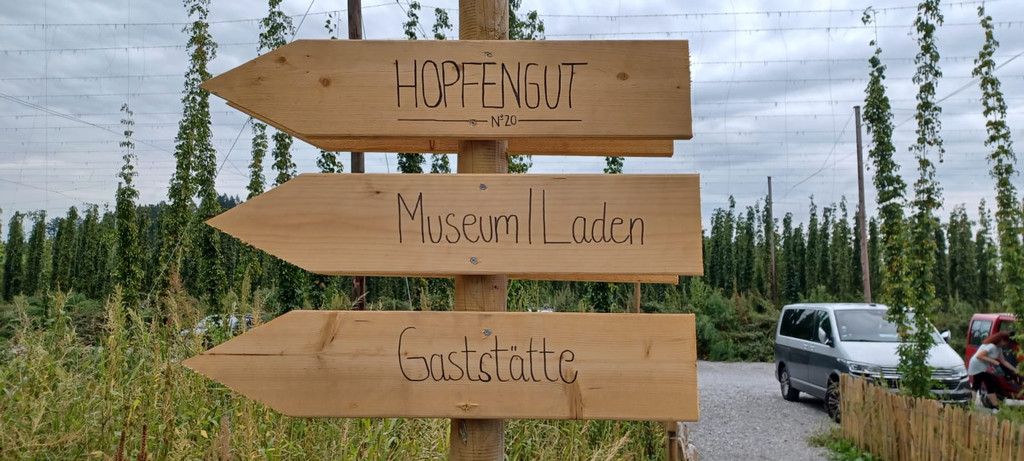 HOPFENGUT
N°20
Museum | Laden
Gaststätte